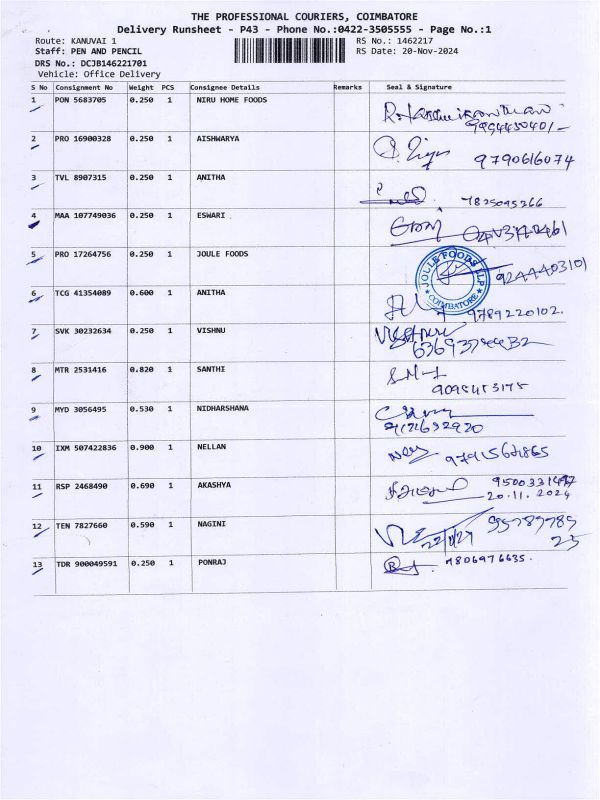 THE PROFESSIONAL COURIERS, COIMBATORE
Delivery Runsheet - P43 - Phone No.:0422-3505555 - Page No.:1
Route: KANUVAI 1 RS No.: 1462217
Staff: PEN AND PENCIL RS Date: 20-Nov-2024
DRS No.: DCJB146221701
Vehicle: Office Delivery
S No Consignment No Weight PCS Consignee Details Remarks Seal & Signature
1 PON 5683705 0.250 1 NIRU HOME FOODS
2 PRO 16900328 0.250 1 AISHWARYA 9790616074
3 TVL 8907315 0.250 1 ANITHA 7825095266
4 MAA 107749036 0.250 1 ESWARI
5 PRO 17264756 0.250 1 JOULE FOODS JOULE FOODS LLP COIMBATORE 9244403101
6 TCG 41354089 0.600 1 ANITHA 9789220102.
7 SVK 30232634 0.250 1 VISHNU
8 MTR 2531416 0.820 1 SANTHI
9 MYD 3056495 0.530 1 NIDHARSHANA
10 IXM 507422836 0.900 1 NELLAN
11 RSP 2468490 0.690 1 AKASHYA
20.11.2024
12 TEN 7827660 0.590 1 NAGINI
13 TDR 900049591 0.250 1 PONRAJ 7806976635.